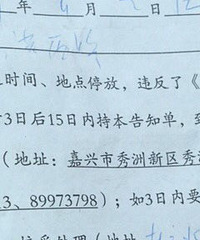 年 月
时间、地点停放，违反了《
3日后15日内持本告知单，到
（地址：嘉兴市秀洲新区秀
3、89973798）；如3日内要
接受处理（地址